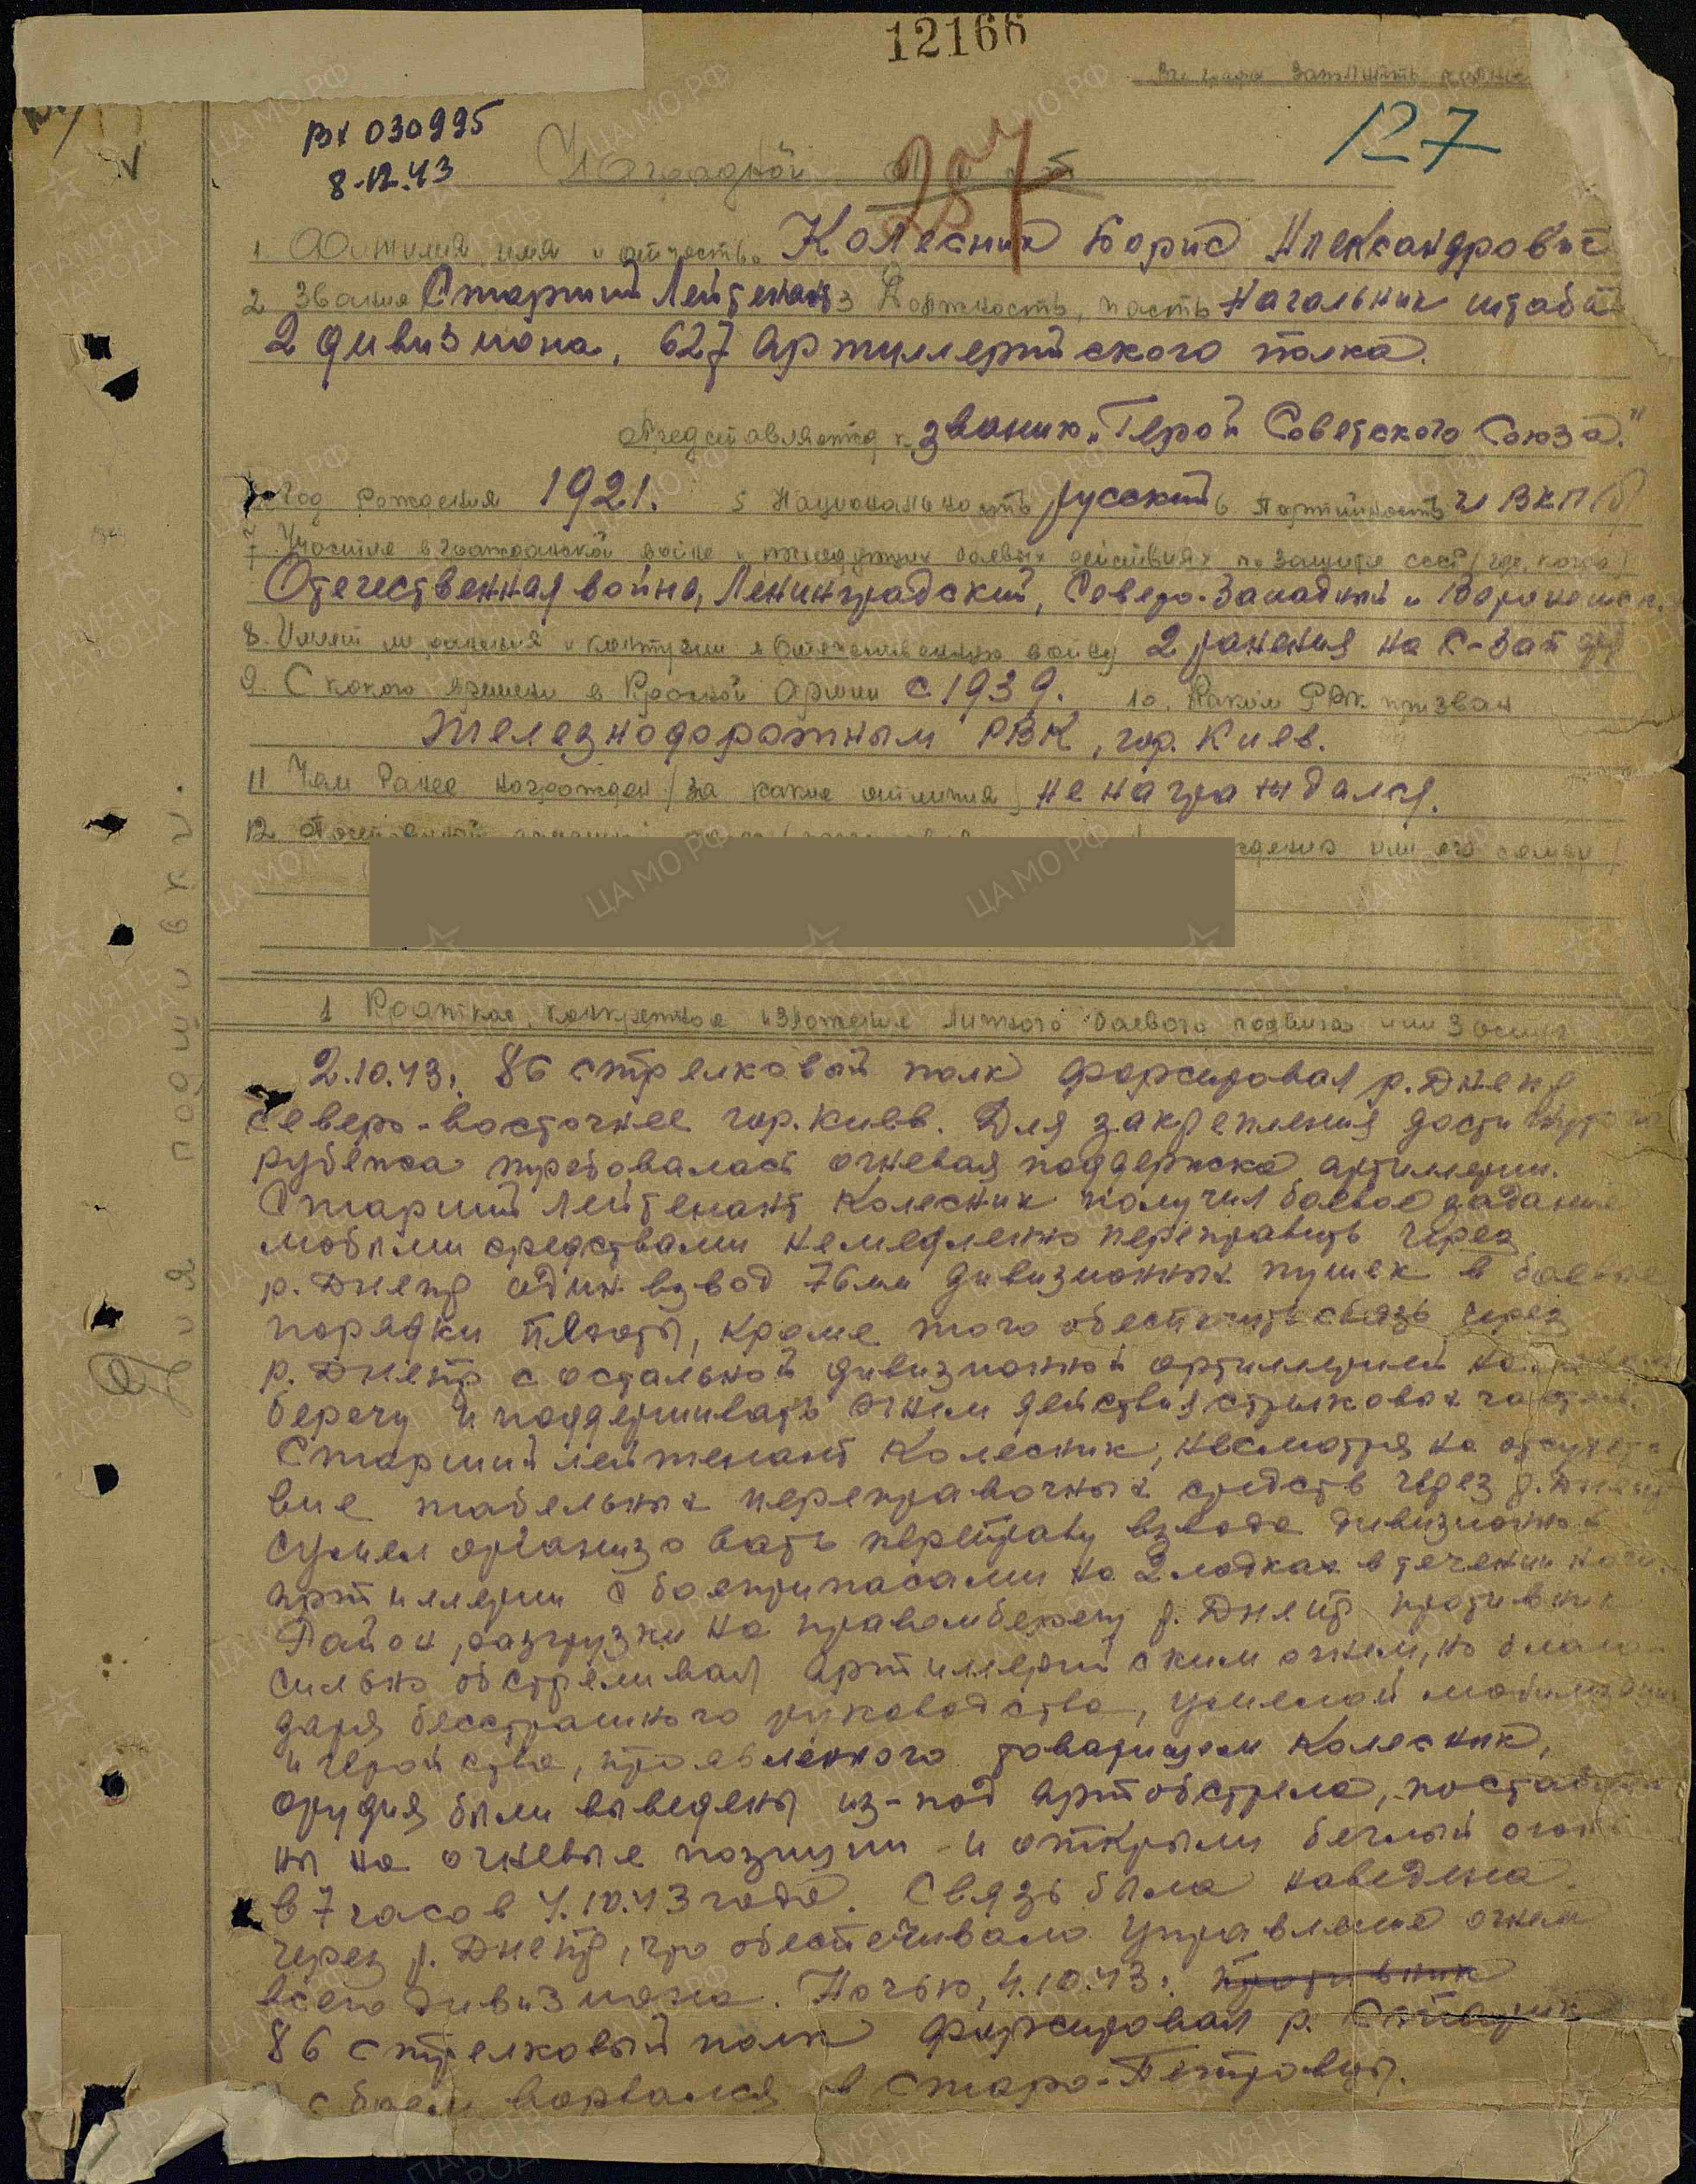 12166
Вх 030995
8.12.43
127
287
Наградной лист
1. Фамилия, имя и отчество Колесник Борис Александрович
2 Звание Старший Лейтенант 3 Должность, часть Начальник штаба
2 дивизиона, 627 Артиллерийского полка.
представляется к званию „Герой Советского Союза."
4. Год рождения 1921. 5 Национальность русский 6 Партийность чл ВКП(б)
7 Участие в гражданской войне и последующих боевых действиях по защите СССР (где, когда)
Отечественная война, Ленинградский, Северо-Западный и
8. Имеет ли ранения и контузии в Отечественную войну 2 ранения на С-Зап фр
9. С какого времени в Красной Армии с 1939. 10. Каким РВК призван
Железнодорожным РВК, гор. Киев.
11 Чем ранее награжден (за какие отличия) не награждался.
12.
или его семьи
Для подшивки.
1 Краткое, конкретное изложение личного боевого подвига или заслуг
2.10.43г. 86 стрелковый полк форсировал р. Днепр
северо-восточнее гор. Киев. Для закрепления достигнутого
рубежа требовалась огневая поддержка артиллерии.
Старший Лейтенант Колесник получил боевое задание
любыми средствами немедленно переправить через
р. Днепр один взвод 76мм дивизионных пушек в боевые
порядки пехоты, кроме того обеспечить связь через
р. Днепр с остальной дивизионной артиллерией на
берегу и поддерживать огнем действия стрелковых частей.
Старший лейтенант Колесник, несмотря на отсутст
вие табельных переправочных средств через р. Днепр
сумел организовать переправу взвода дивизионной
артиллерии с боеприпасами на 2 лодках в течении ночи.
Район разгрузки на правом берегу р. Днепр противник
сильно обстреливал артиллерийским огнем, но благо-
даря бесстрашного руководства, умелой
и геройства, проявленного товарищем Колесник,
орудия были выведены из-под артобстрела, поставле
ны на огневые позиции и открыли беглый огонь
в 7 часов 4.10.43 года. Связь была наведена
через р. Днепр, что обеспечивало управление огнем
всего дивизиона. Ночью, 4.10.43г. противник
86 стрелковый полк форсировал р.
с боем ворвался в Старо-Петровцы.
ЦА МО РФ
ПАМЯТЬ НАРОДА